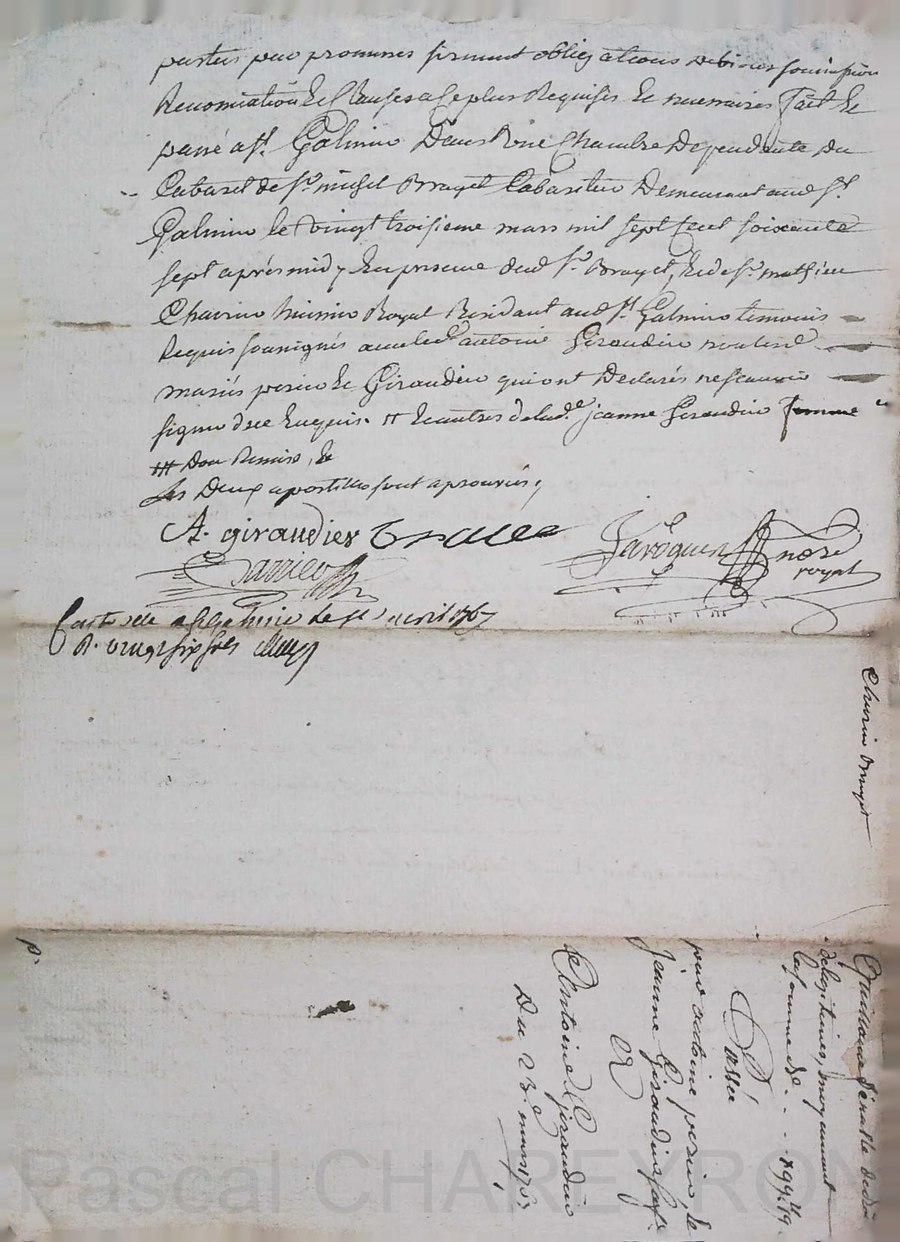 parties par promesses serment obligations de biens soumission
Renonciation Et Clauses a Ce plus Requises Et necessaires fait Et
passé a st. Galmier Dans Une Chambre Dependante Du
Cabaret de sr. michel Bruyet Cabaretier Demeurant aud st.
Galmier le Vingt troisieme mars mil sept Cent soixante
sept apres midy En presence dud sr. Bruyet, Et de sr. mathieu
huissier Royal Residant aud st. Galmier temoins
Requis soussignés avec led. antoine Giraudier non lesd
mariés perier Et Giraudier qui ont Declarés ne scavoir
signer de ce Enquis. # Et autres de lad.e jeanne Giraudier femme
## Et
Les Deux apostilles sont aprouvés,
A. giraudier
Jaroquin nore
royal
Controllé a st Galmier le avril 1767
R. vingt six sols
Bruyet
p.
Quittance finalle de droits
de legitimes, moyenant
la somme de - - 199ll 19
Passée
par antoine perier, Et
jeanne Giraudier sa fe.
A
Antoine Giraudier
Du 23e mars 1767
Pascal CHAREYRON